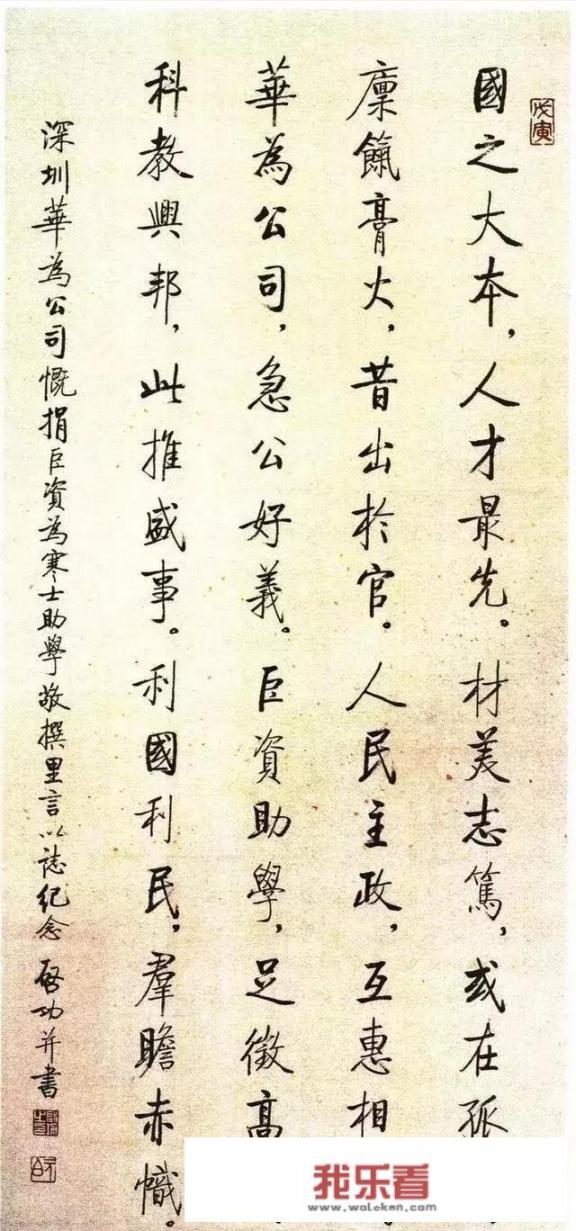 戊寅
國之大本，人才最先。材美志篤，或在孤
廩餼膏火，昔出於官。人民主政，互惠相
華為公司，急公好義。巨資助學，足徵高
科教興邦，此推盛事。利國利民，羣瞻赤幟。
深圳華為公司慨捐巨資為寒士助學敬撰里言以誌紀念 啟功并書
我乐看
www.woleken.com